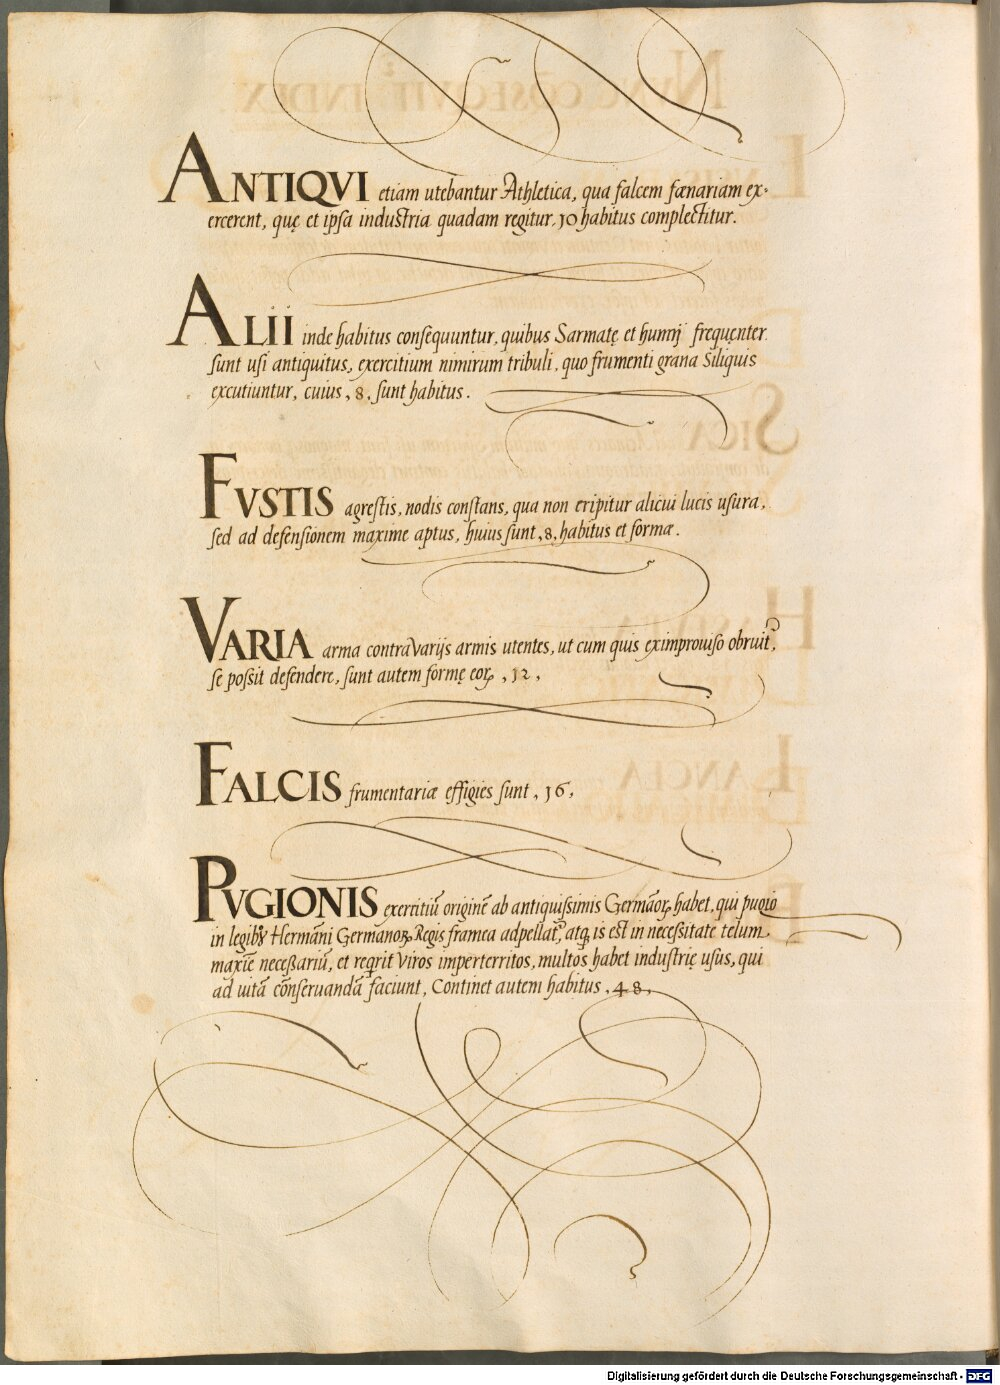 ANTIQVI etiam utebantur Athletica, qua falcem fænariam ex-
ercerent, quę et ipsa industria quadam regitur, 10 habitus complectitur.
ALII inde habitus consequuntur, quibus Sarmatę et hunnj frequęnter
sunt usi antiquitus, exercitium nimirum tribuli, quo frumenti grana Siliquis
excutiuntur, cuius, 8, sunt habitus.
FVSTIS agrestis, nodis constans, qua non eripitur alicui lucis usura,
sed ad defensionem maxime aptus, huius sunt, 8, habitus et forma.
VARIA arma contra Varijs armis utentes, ut cum quis eximprouiso obruit᷒,
se possit defendere, sunt autem formę eoꝝ, 12,
FALCIS frumentariæ effigies sunt, 16,
PVGIONIS exercitiū originē ab antiquissimis Germãoꝝ habet, qui pugio
in legib⁹ Hermãni Germanoꝝ Regis framea adpellat᷒, atq᷒ is est in necessitate telum
maxīe necessariū, et reqrit Viros imperterritos, multos habet industrię usus, qui
ad uitã cõnseruandã faciunt, Continet autem habitus, 48,
Digitalisierung gefördert durch die Deutsche Forschungsgemeinschaft - DFG